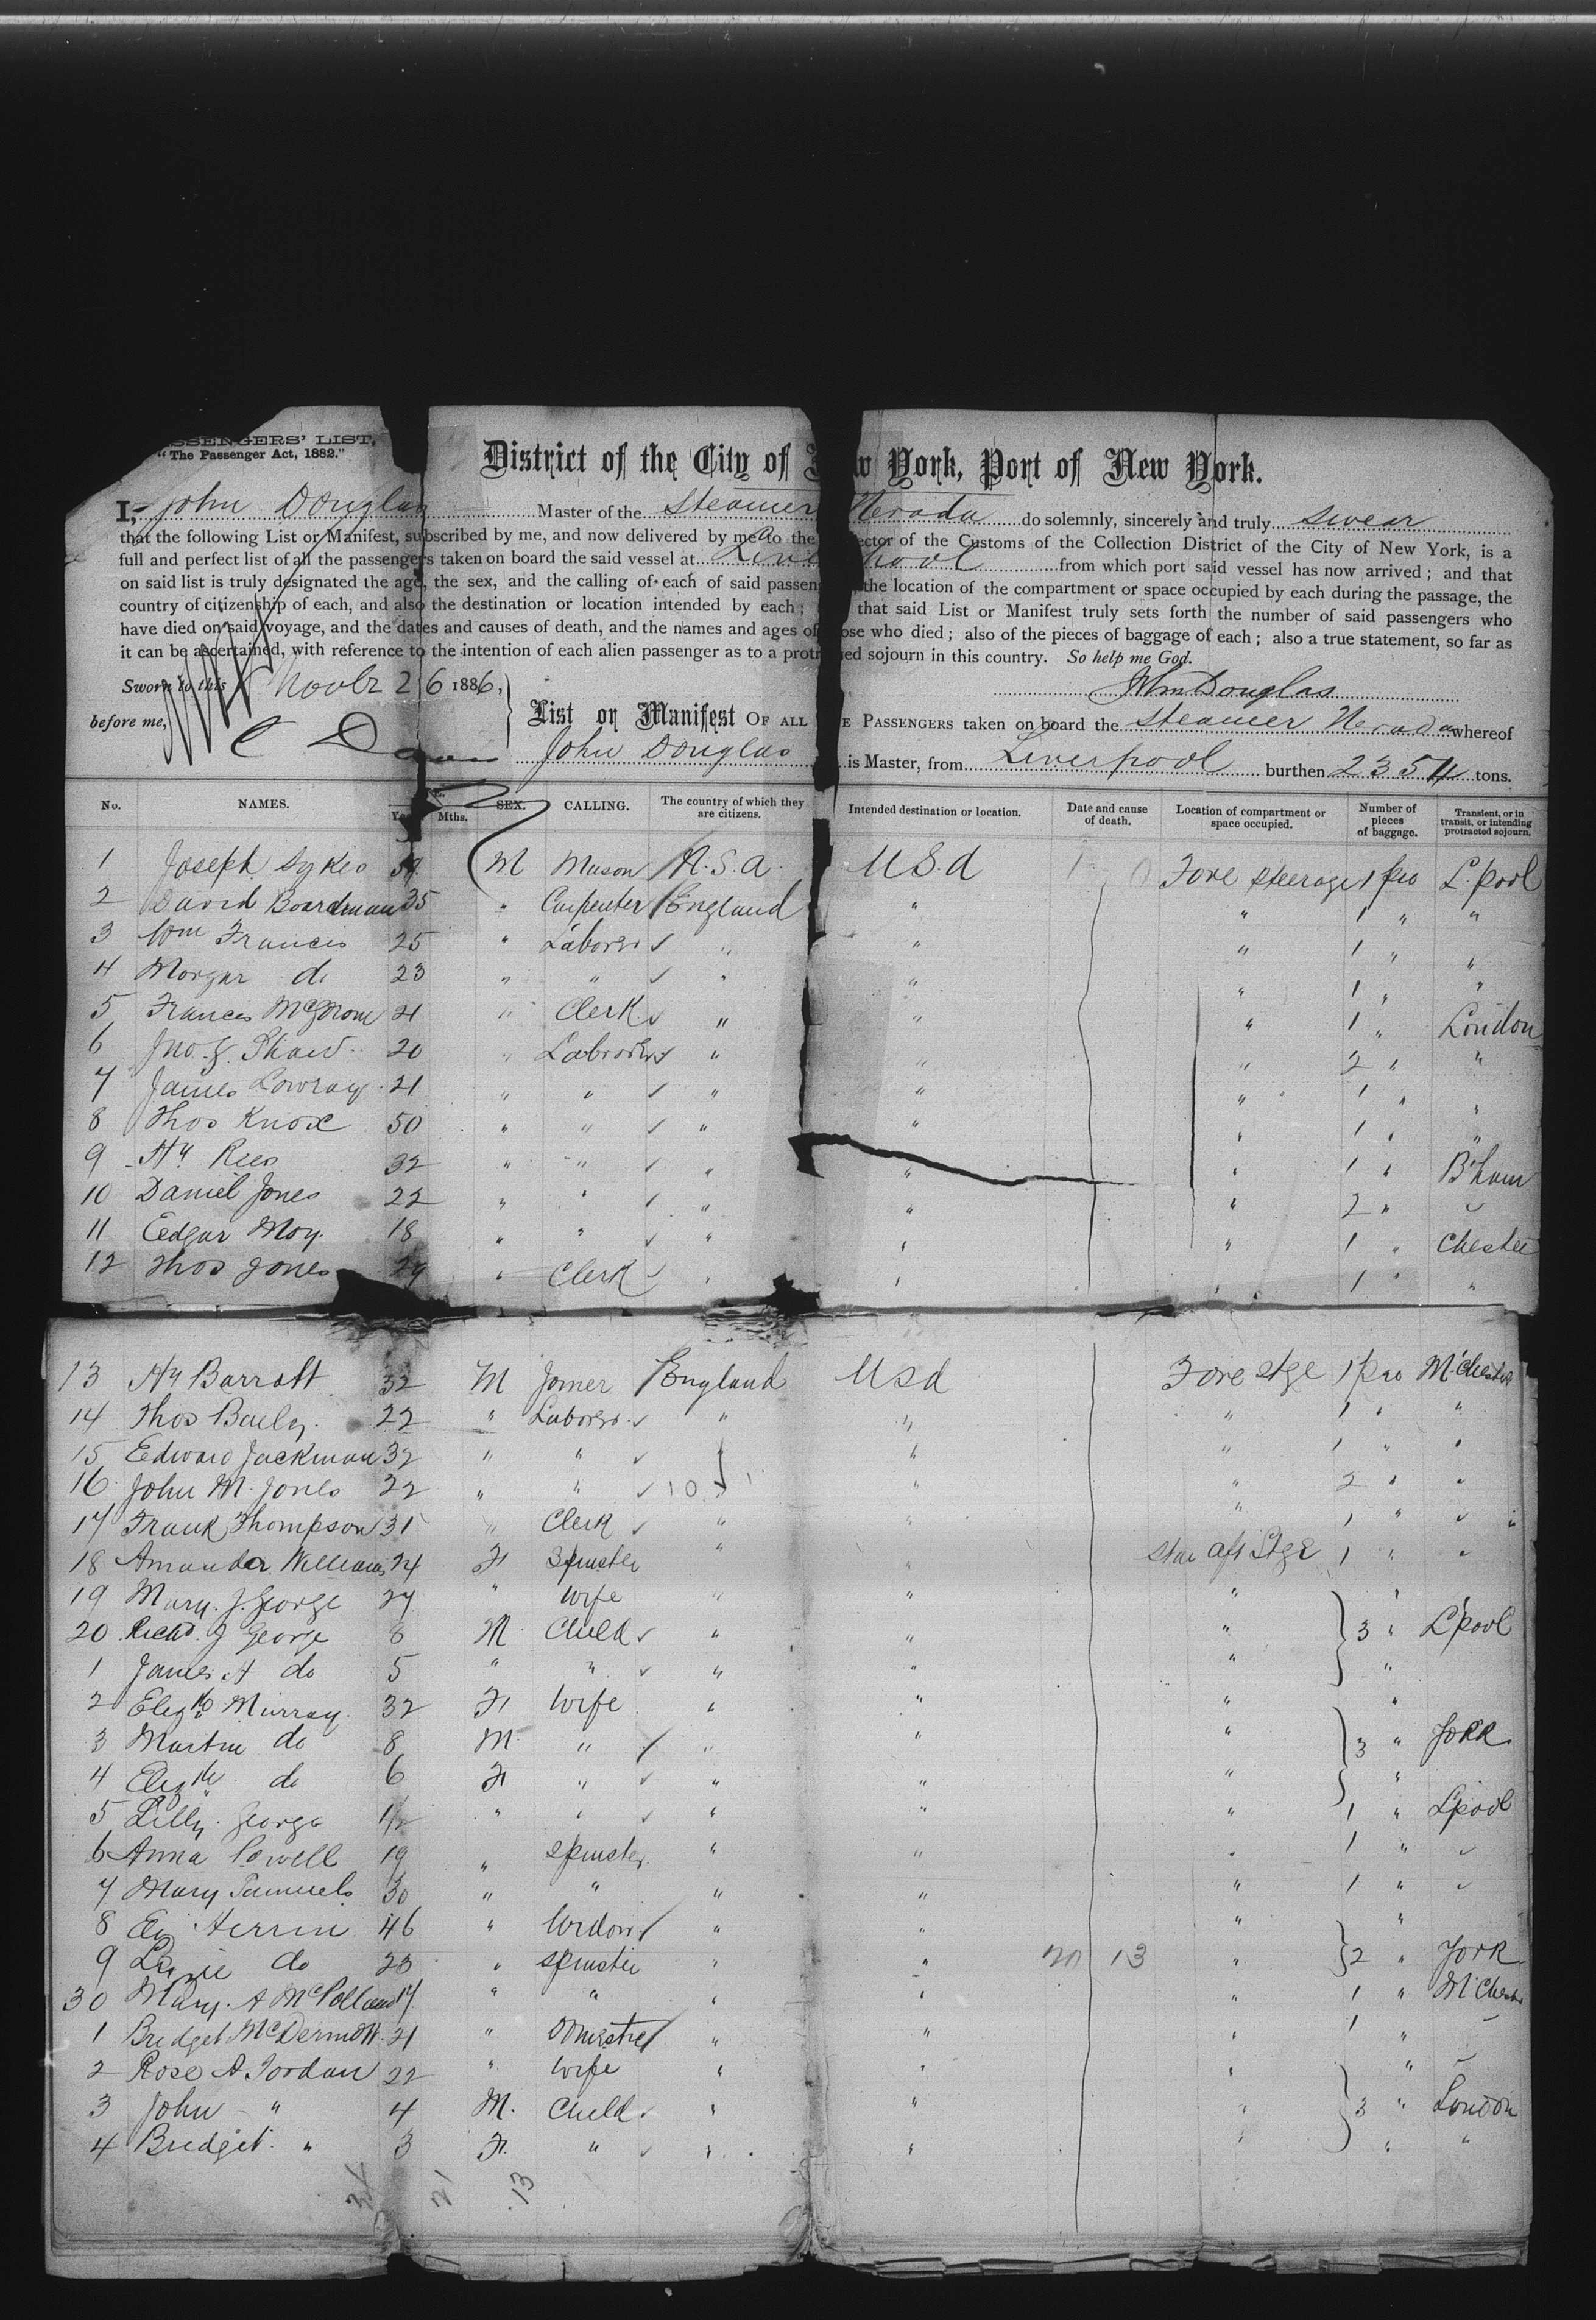 SSENGERS' LIST.
"The Passenger Act, 1882."
District of the City of New York, Port of New York.
I, John Douglas Master of the Steamer Nevada do solemnly, sincerely and truly swear
that the following List or Manifest, subscribed by me, and now delivered by me to the ector of the Customs of the Collection District of the City of New York, is a
full and perfect list of all the passengers taken on board the said vessel at Liverpool from which port said vessel has now arrived; and that
on said list is truly designated the age, the sex, and the calling of each of said passen the location of the compartment or space occupied by each during the passage, the
country of citizenship of each, and also the destination or location intended by each; that said List or Manifest truly sets forth the number of said passengers who
have died on said voyage, and the dates and causes of death, and the names and ages of ose who died; also of the pieces of baggage of each; also a true statement, so far as
it can be ascertained, with reference to the intention of each alien passenger as to a protr ed sojourn in this country. So help me God.
Sworn to this Novbr 26 1886,
Jhn Douglas
before me,
List or Manifest OF ALL E PASSENGERS taken on board the Steamer Nevada whereof
John Douglas is Master, from Liverpool burthen 2354 tons.
No. NAMES. Mths. SEX. CALLING. The country of which they are citizens. Intended destination or location. Date and cause of death. Location of compartment or space occupied. Number of pieces of baggage. Transient, or in transit, or intending protracted sojourn.
1 Joseph Sykes M Mason U.S.a U.S.a Fore steerage 1 pce L'pool
2 David Boardman 35 " Carpenter England " " 1 " "
3 Wm Francis 25 " Laborer " " " 1 " "
4 Morgan do 23 " " " " " 1 " "
5 Frances 21 " Clerk " " " 1 " London
6 Jno. J. Shaw 20 " Laborer " " " 2 " "
7 James Lowray 21 " " " " " 1 " "
8 Thos Knox 50 " " " " " 1 " "
9 Hy Rees 32 " " " " " 1 " B'ham
10 Daniel Jones 22 " " " " " 2 " "
11 Eedgar Moy. 18 " " " " " 1 " Chester
12 Thos Jones 29 " Clerk " " " 1 " "
13 Hy Barratt 32 M Joiner England Usa Fore stge 1 pce M'Chester
14 Thos Baily 22 " Laborer " " " 1 " "
15 Edward Jackman 32 " " " " " 1 " "
16 John M. Jones 22 " " 10 " " " 2 " "
17 Frank Thompson 31 " Clerk " " " 1 " "
18 Amanda Williams 24 F Spinster " " aft Stge 1 " "
19 Mary. J. George 27 " Wife " " " "
20 Richd. J George 8 M Child " " " 3 " L'pool
1 James A do 5 " " " " " "
2 Elizth Murray 32 F Wife " " " "
3 Martin do 8 M " " " " 3 " York
4 Elizth do 6 F " " " " "
5 Lilly George " " " " " 1 " L'pool
6 Anna Powell 19 " Spinster " " " 1 " "
7 Mary Samuels 30 " " " " " 1 " "
8 46 " Widow " " " "
9 do 23 " Spinster " " 20 13 " 2 " York
30 Mary. A 17 " " " " " 1 " M'Chester
1 Bridget McDermott 21 " Domestic " " " 1 " "
2 Rose A. Jordan 22 " Wife " " " " "
3 John " 4 M. Child " " " 3 " London
4 Bridget " 3 F. " " " " " "
21 13